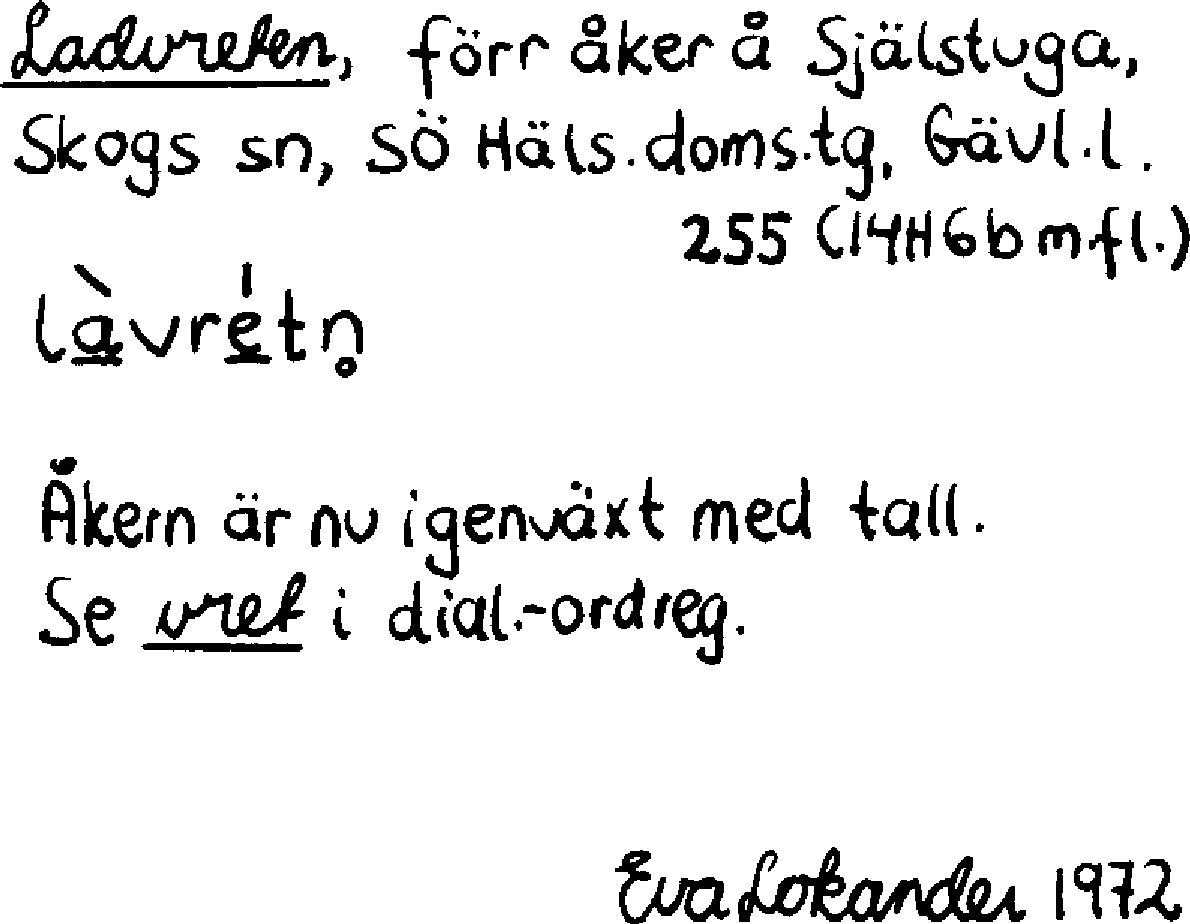 Ladvreten, förr åker å Självstuga,
Skogs sn, SÖ Häls.doms.tg, Gävl.l.
255 (14H6b m.fl.)
là̳vré̳tn̥
Åkern är nu igenväxt med tall.
Se vret i dial.-ordreg.
Eva Lokander 1972